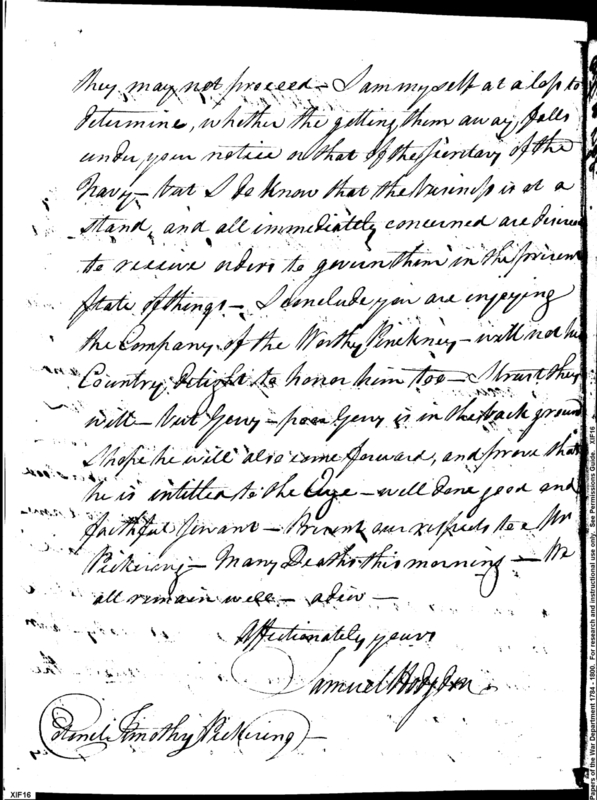 they may not proceed – I am myself at a loss to
determine, whether the getting them away, falls
under your notice or that of the Secretary of the
Navy – but I do know that the business is at a
stand, and all immediately concerned are
to receive orders to govern them in the present
state of things – I conclude you are enjoying
the Company of the Worthy Pinckney – will not his
Country delight to honor him too – I trust they
will – but Gerry – poor Gerry is in the back ground
I hope he will also come forward, and prove that
he is intitled to the – well done good and
faithful Servant – Present our respects to Mrs
Pickering – Many Deaths this morning – We
all remain well – adieu –
Affectionately yours
Samuel Hodgdon
Colonel Timothy Pickering –
XIF16
Papers of the War Department 1784 - 1800. For research and instructional use only. See Permissions Guide. XIF16